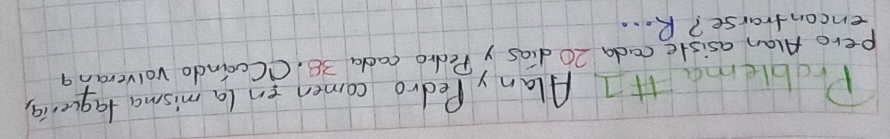 Problema #1 Alan y Pedro comen en la misma taquería,
pero Alan asiste cada 20 días y Pedro cada 38. ¿Cuándo volveran a
encontrarse? R...